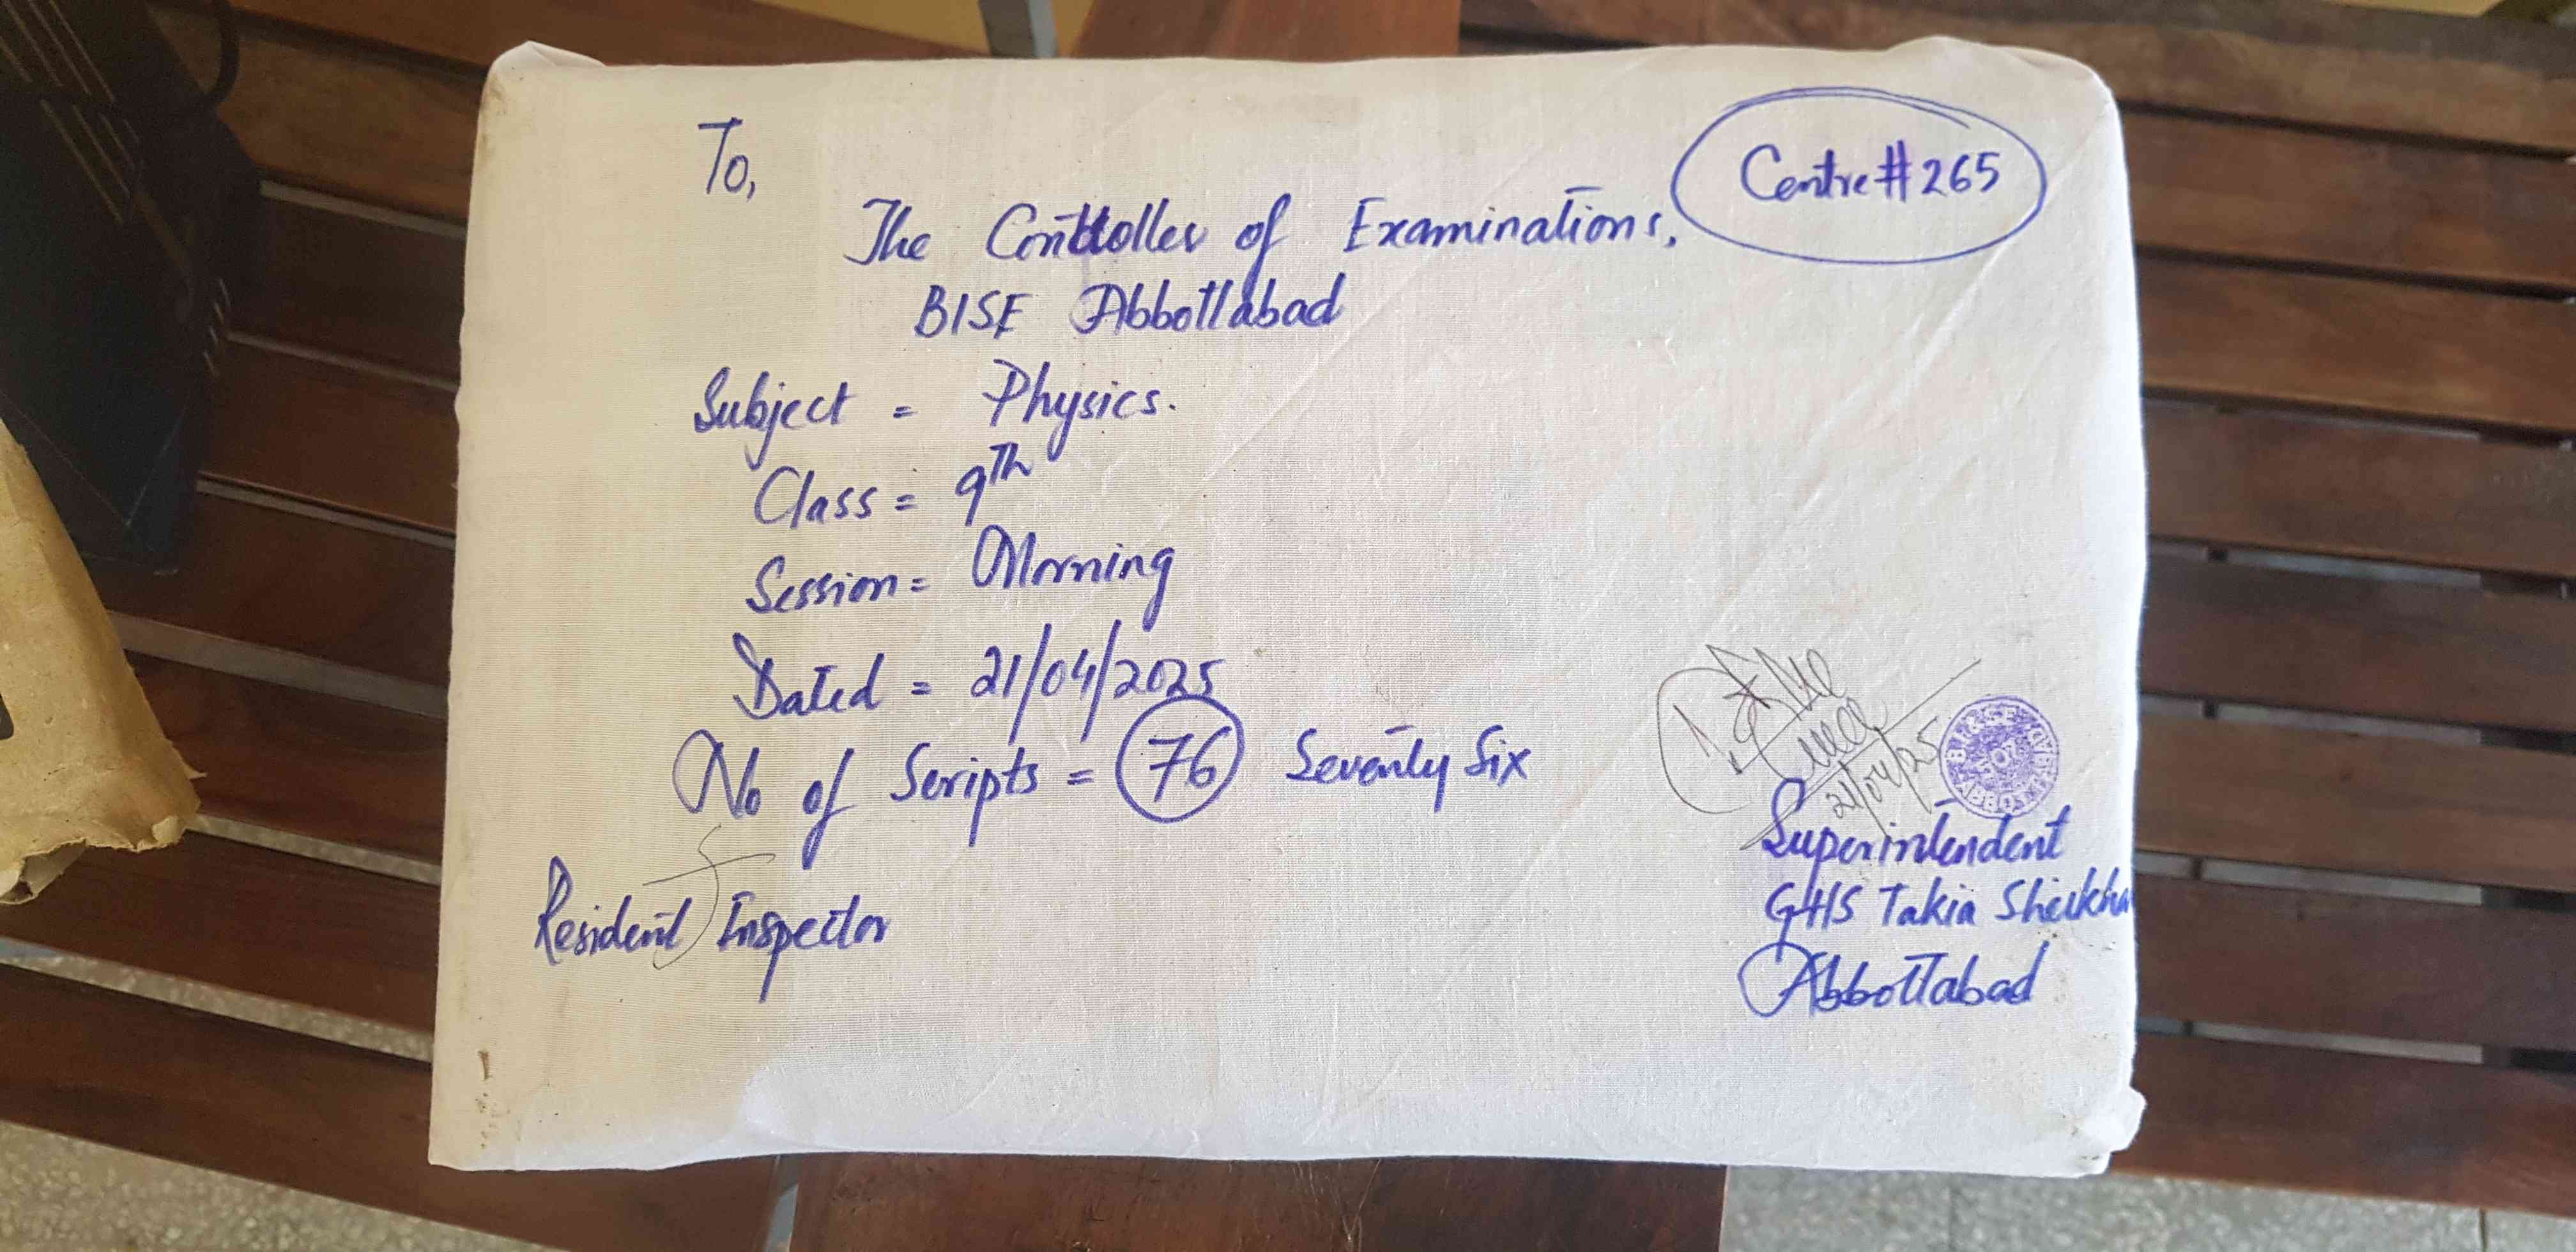 Centre # 265
To,
The Controller of Examinations,
BISE Abbottabad
Subject = Physics.
Class = 9th
Session = Morning
Dated = 21/04/2025
No of Scripts = 76 Seventy Six
21/04/25
Resident Inspector
Superintendent
GHS Takia Sheikha
Abbottabad